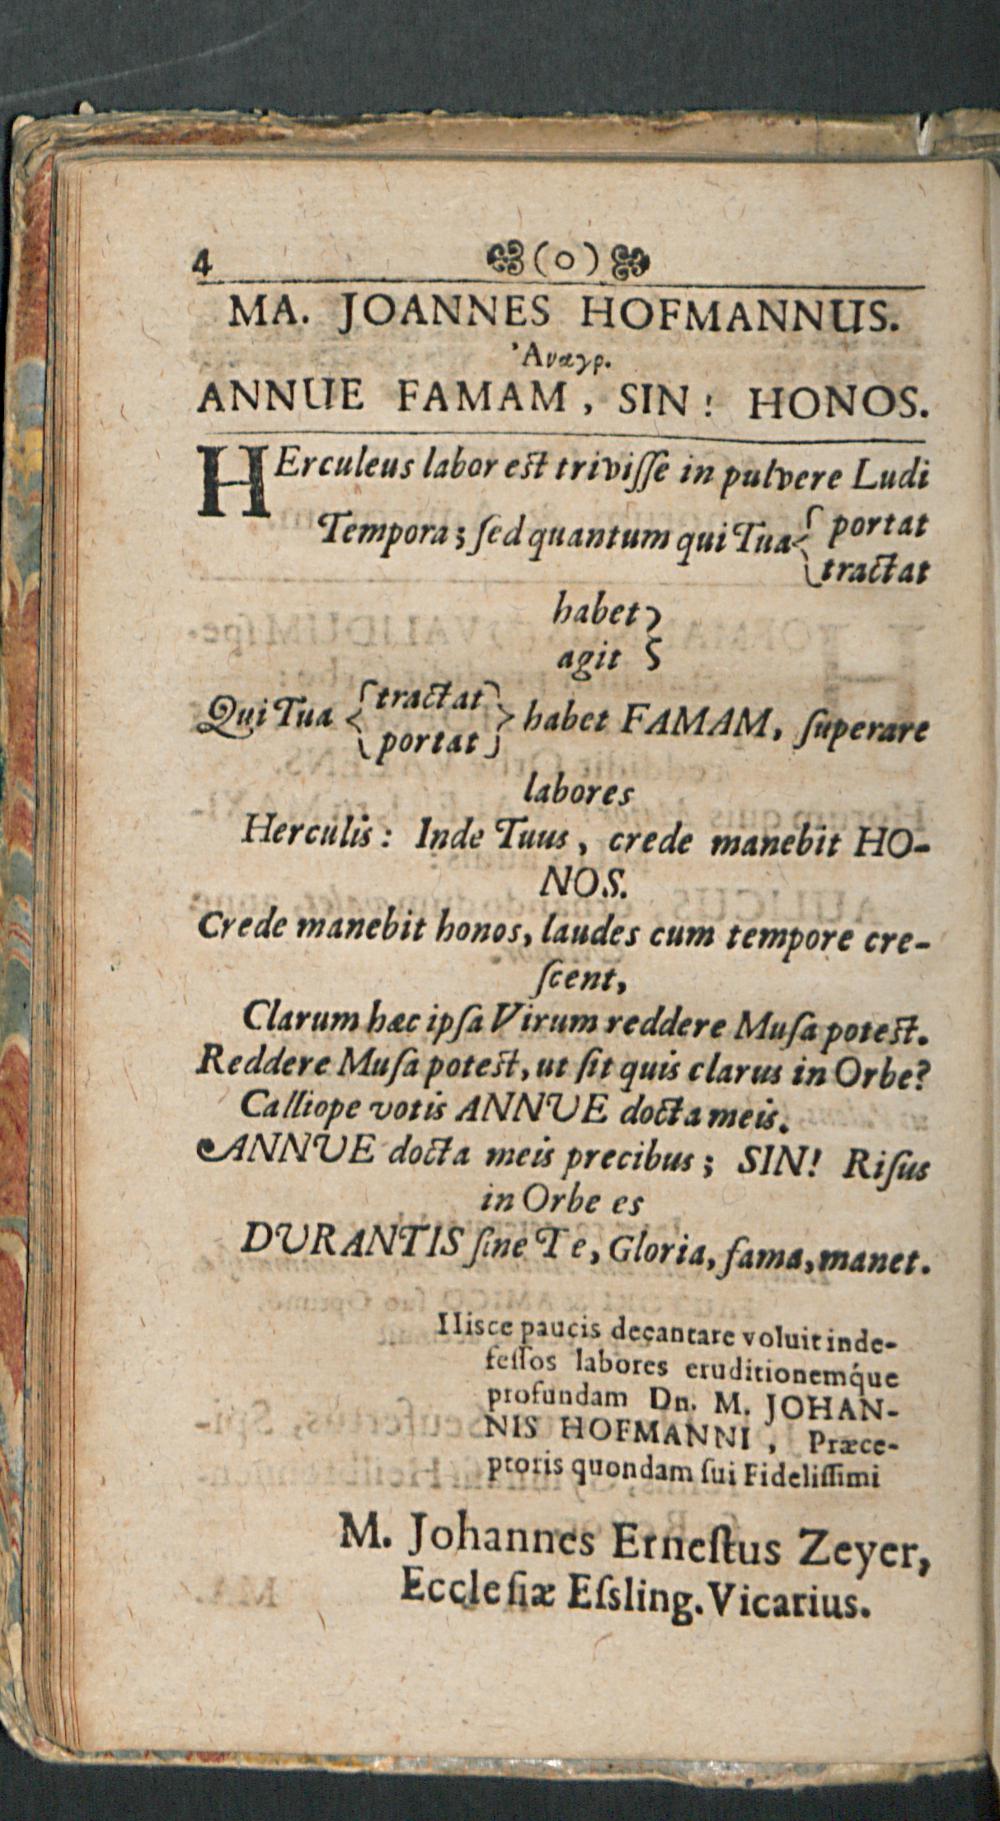 4 (o)
MA. JOANNES HOFMANNUS.
Ἀναγρ.
ANNUE FAMAM, SIN! HONOS.
HErculeus labor est triviſſe in pulvere Ludi
Tempora; ſed quantum qui Tua { portat
tractat
habet }
agit
Qui Tua { tractat } habet FAMAM, ſuperare
portat
labores
Herculis: Inde Tuus, crede manebit HO-
NOS.
Crede manebit honos, laudes cum tempore cre-
ſcent,
Clarum hæc ipſa Virum reddere Muſa potest.
Reddere Muſa potest, ut ſit quis clarus in Orbe?
Calliope votis ANNUE docta meis.
ANNUE docta meis precibus; SIN! Riſus
in Orbe es
DURANTIS ſine Te, Gloria, fama, manet.
Hisce paucis decantare voluit inde-
feſſos labores eruditionemq́ue
profundam Dn. M. JOHAN-
NIS HOFMANNI, Præce-
ptoris quondam ſui Fideliſſimi
M. Johannes Erneſtus Zeyer,
Eccleſiæ Eſsling. Vicarius.